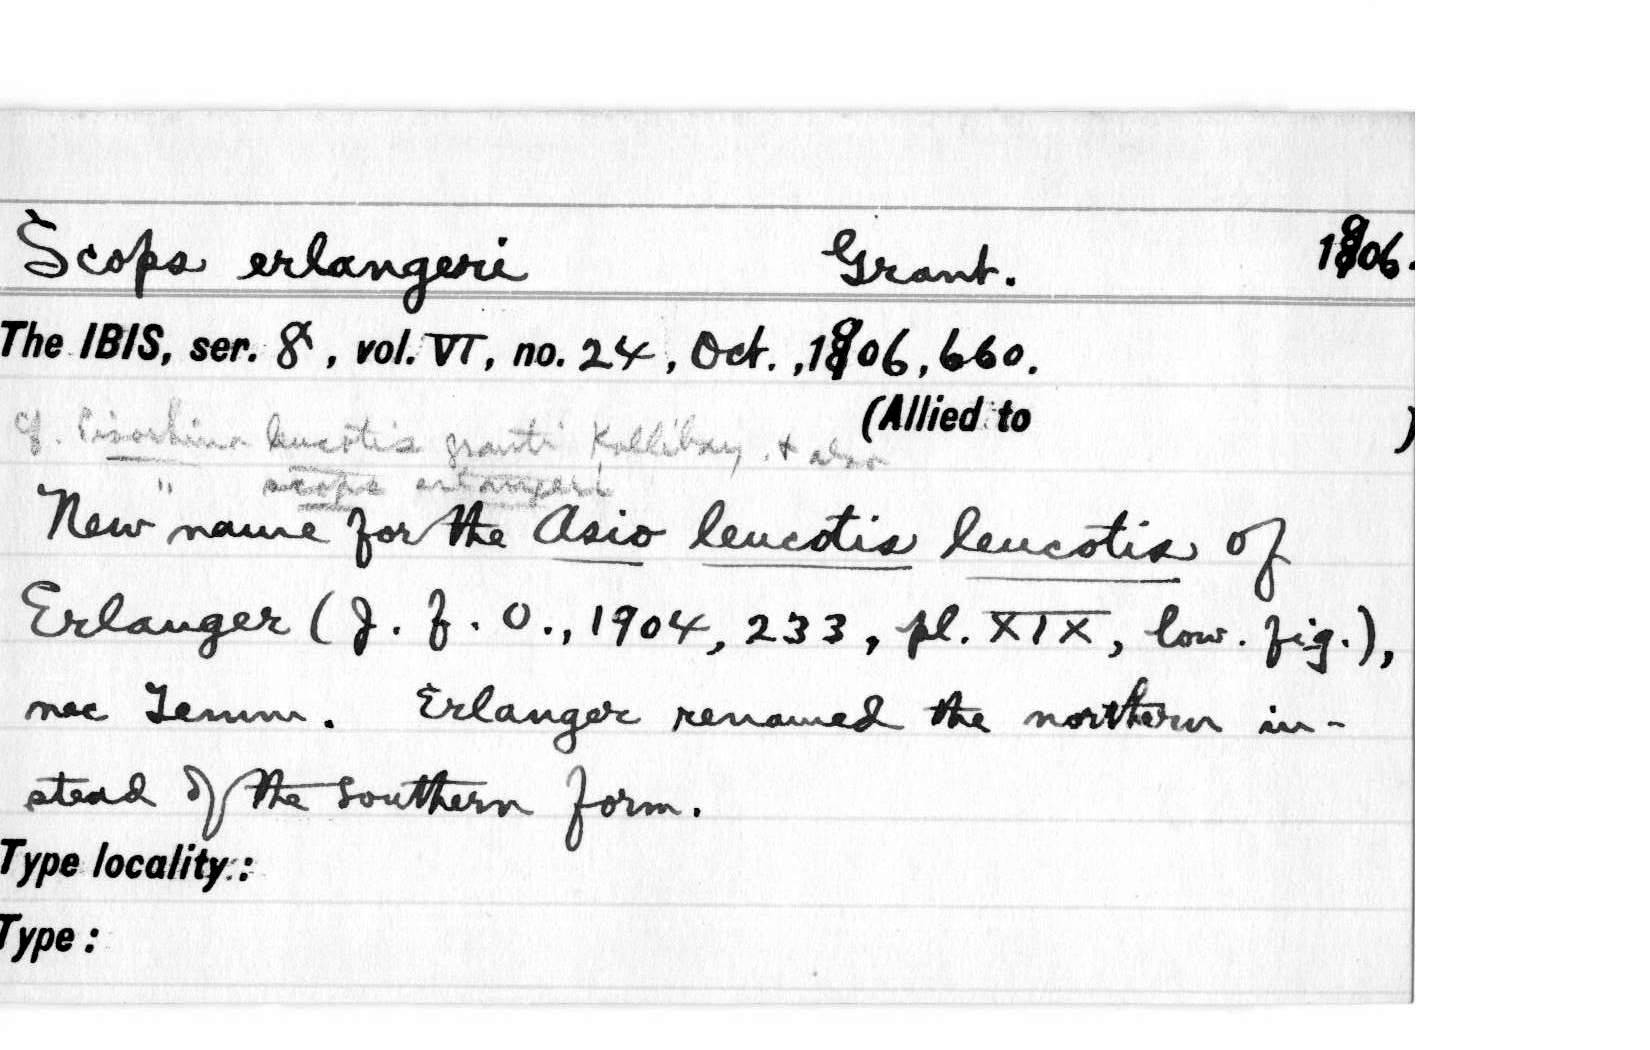 Scops erlangeri Grant. 1906.
The IBIS, ser. 8, vol. VI, no. 24, Oct., 1906, 660.
(Allied to )
cf. Pisorhina leucotis granti Kollibay, & also
" scops erlangeri
New name for the Asio leucotis leucotis of
Erlanger (J. f. O., 1904, 233, pl. XIX, low. fig.),
nec Temm. Erlanger renamed the northern in-
stead of the southern form.
Type locality:
Type: